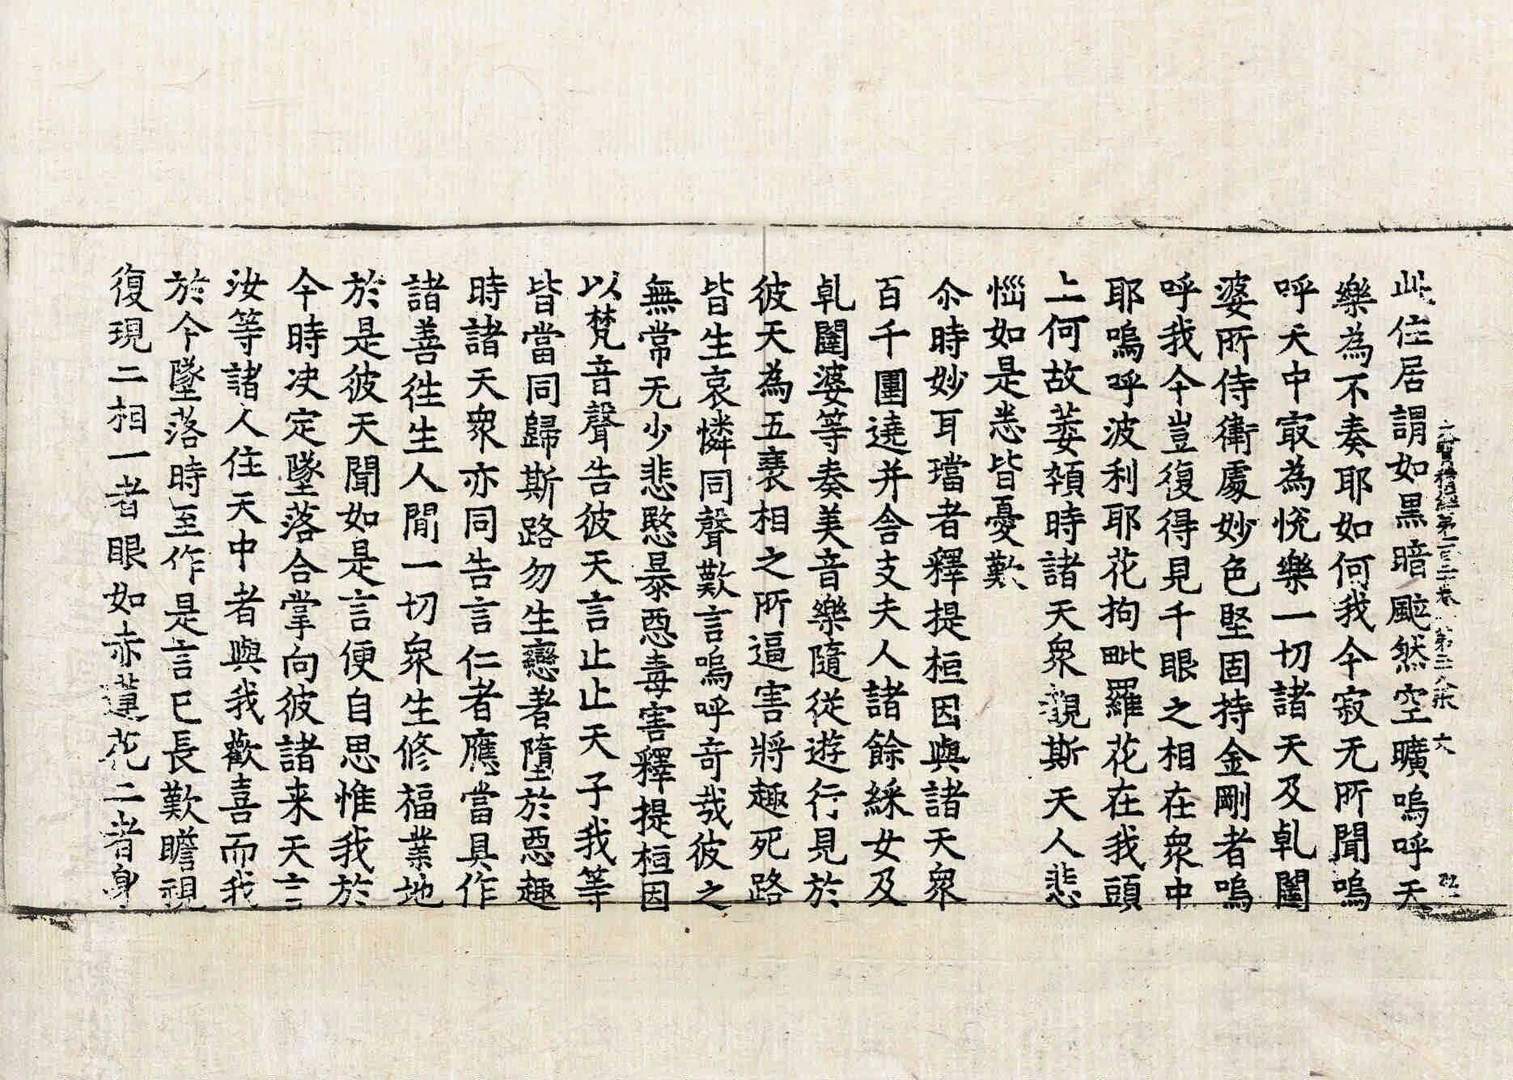 大寶積經第一百三卷 第三張 大
此住居謂如黑暗颰然空曠嗚呼天
樂為不奏耶如何我今寂无所聞嗚
呼天中㝡為悅樂一切諸天及乹闥
婆所侍衛處妙色堅固持金剛者嗚
呼我今豈復得見千眼之相在衆中
耶嗚呼波利耶花拘毗羅花在我頭
上何故萎顇時諸天衆覩斯天人悲
惱如是悉皆憂歎
尒時妙耳璫者釋提桓因與諸天衆
百千圍遶并舍支夫人諸餘綵女及
乹闥婆等奏美音樂隨從遊行見於
彼天為五衰相之所逼害將趣死路
皆生哀憐同聲歎言嗚呼奇㦲彼之
無常无少悲愍暴惡毒害釋提桓因
以梵音聲告彼天言止止天子我等
皆當同歸斯路勿生戀著墮於惡趣
時諸天衆亦同告言仁者應當具作
諸善徃生人間一切衆生修福業地
於是彼天聞如是言便自思惟我於
今時决定墜落合掌向彼諸来天言
汝等諸人住天中者與我歡喜而我
於今墜落時至作是言已長歎瞻視
復現二相一者眼如赤蓮花二者身